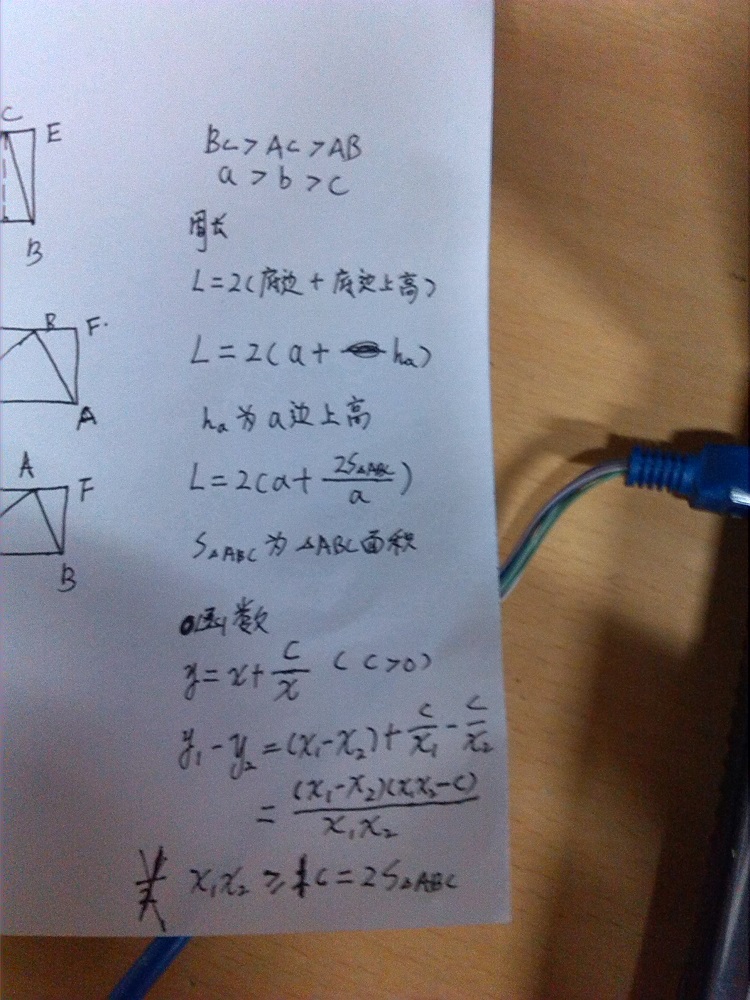 C E
B
B F.
A
A F
B
BC > AC > AB
a > b > c
周长
L=2(底边+底边上高)
L=2(a+ha)
ha为a边上高
L=2(a+\frac{2S△ABC}{a})
S△ABC为△ABC面积
函数
y=x+\frac{c}{x} (c>0)
y₁-y₂=(x₁-x₂)+\frac{c}{x₁}-\frac{c}{x₂}
=\frac{(x₁-x₂)(x₁x₂-c)}{x₁x₂}
x₁x₂≥c=2S△ABC